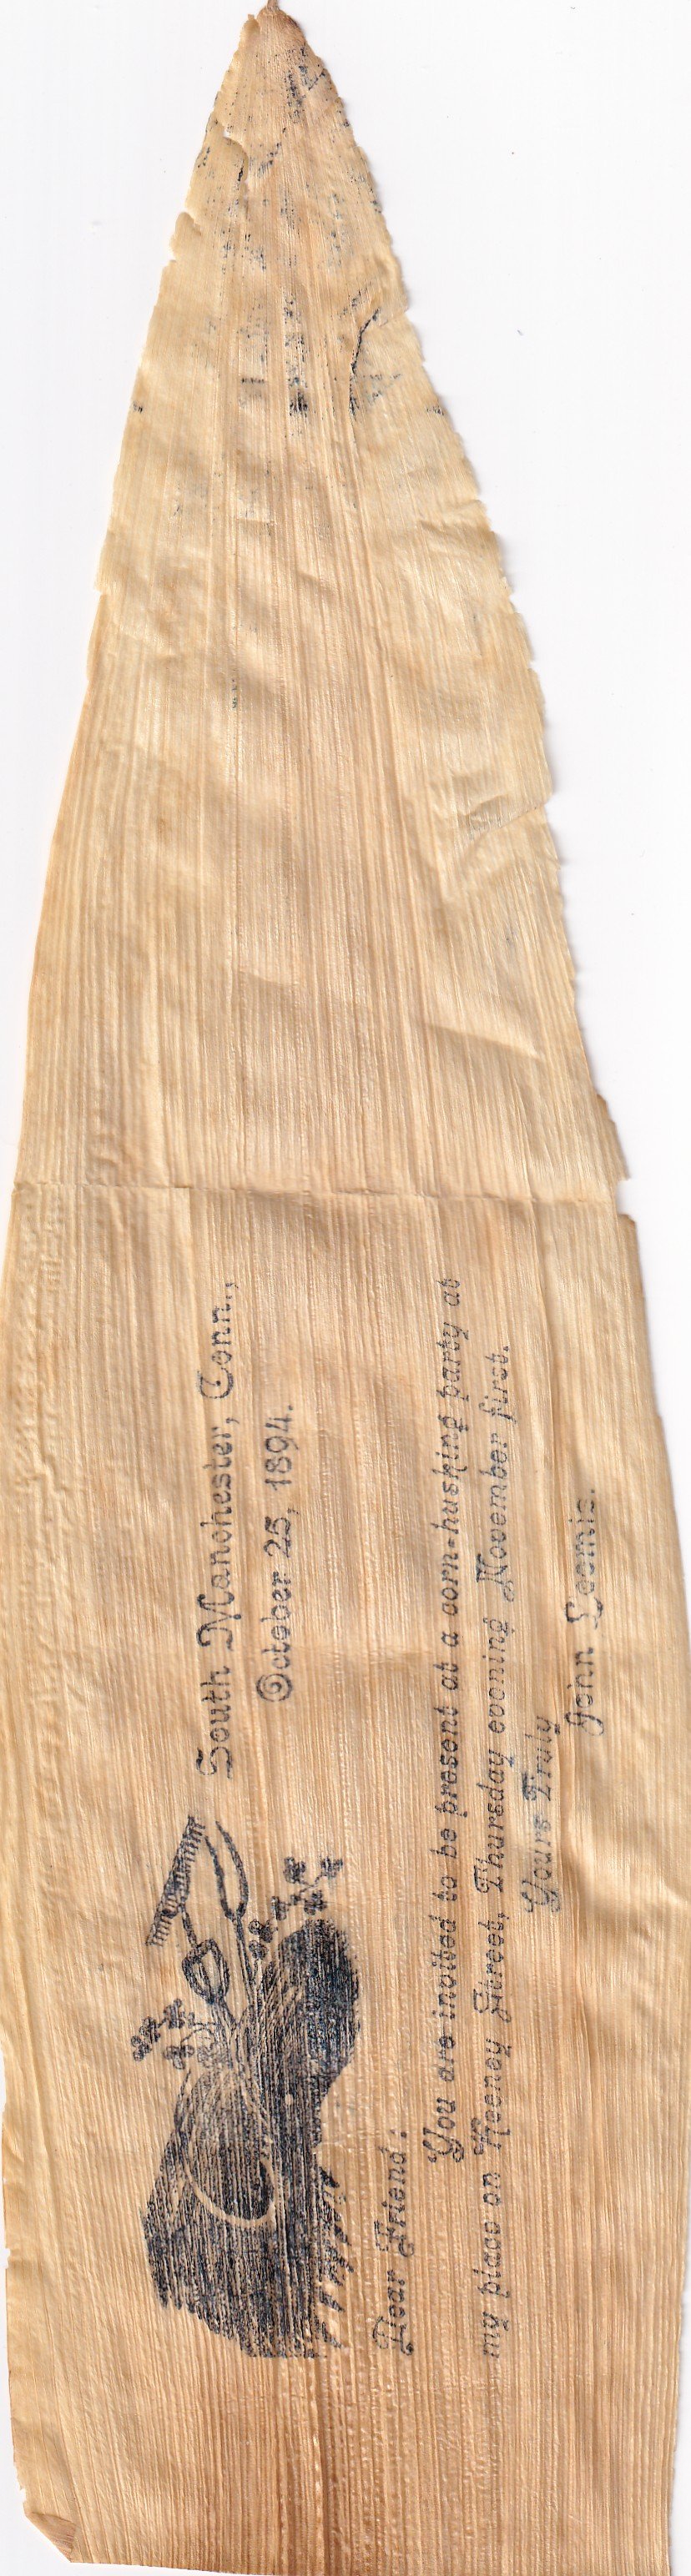 South Manchester, Conn.,
October 25, 1894.
Dear Friend:
You are invited to be present at a corn-husking party at
my place on Keeney Street, Thursday evening November first.
Yours Truly
John Loomis.